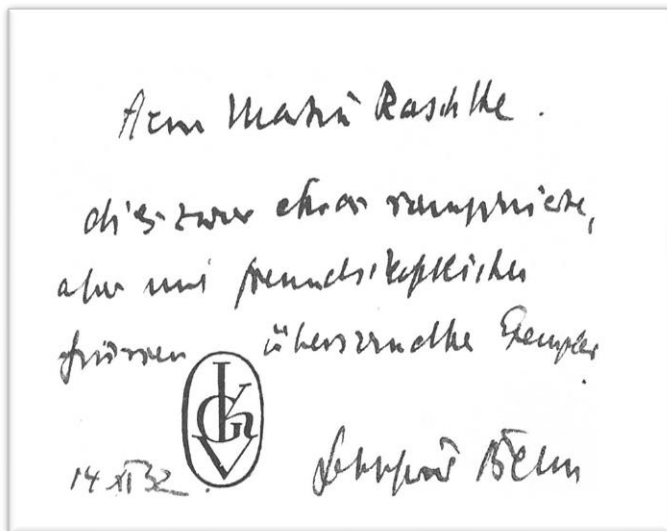 Herrn Martin Raschke.
dies zwar etwas ramponierte,
aber mit freundschaftlichen
Grüssen übersandte Exemplar.
14 XI 32.
Gottfried Benn